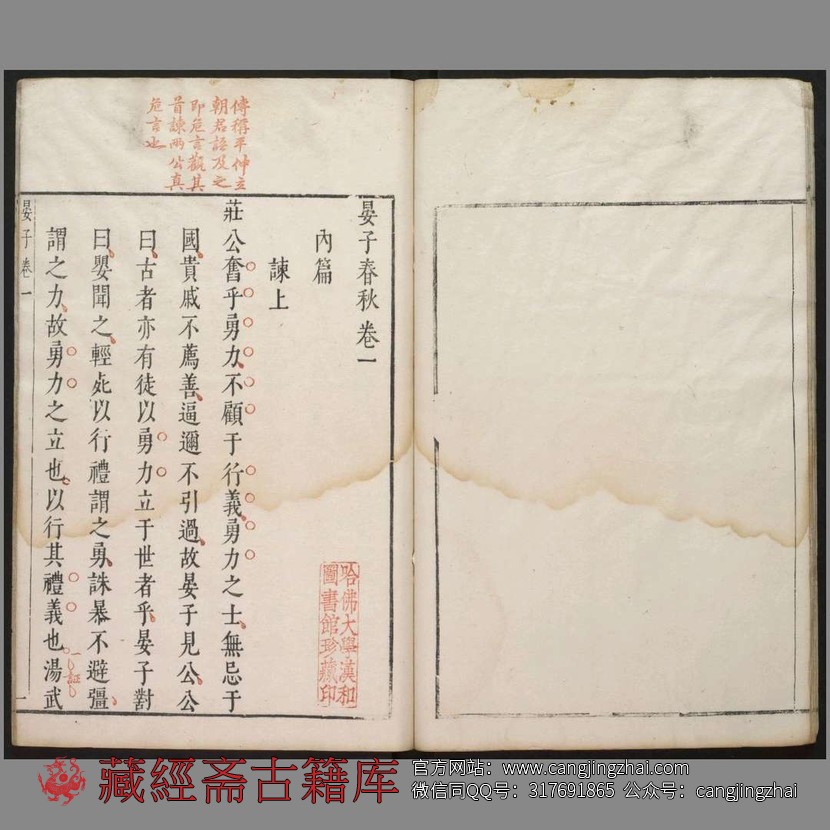 傳稱平仲立
朝君語及之
即危言觀其
首諫兩公真
危言也
晏子春秋卷一
內篇
諫上
莊公奮乎勇力不顧于行義勇力之士無忌于
國貴戚不薦善逼邇不引過故晏子見公公
曰古者亦有徒以勇力立于世者乎晏子對
曰嬰聞之輕死以行禮謂之勇誅暴不避彊
謂之力故勇力之立也以行其禮義也湯武
一証
晏子卷一
一
哈佛大學漢和
圖書館珍藏印
藏經斋古籍库
官方网站：www.cangjingzhai.com
微信同QQ号：317691865 公众号：cangjingzhai